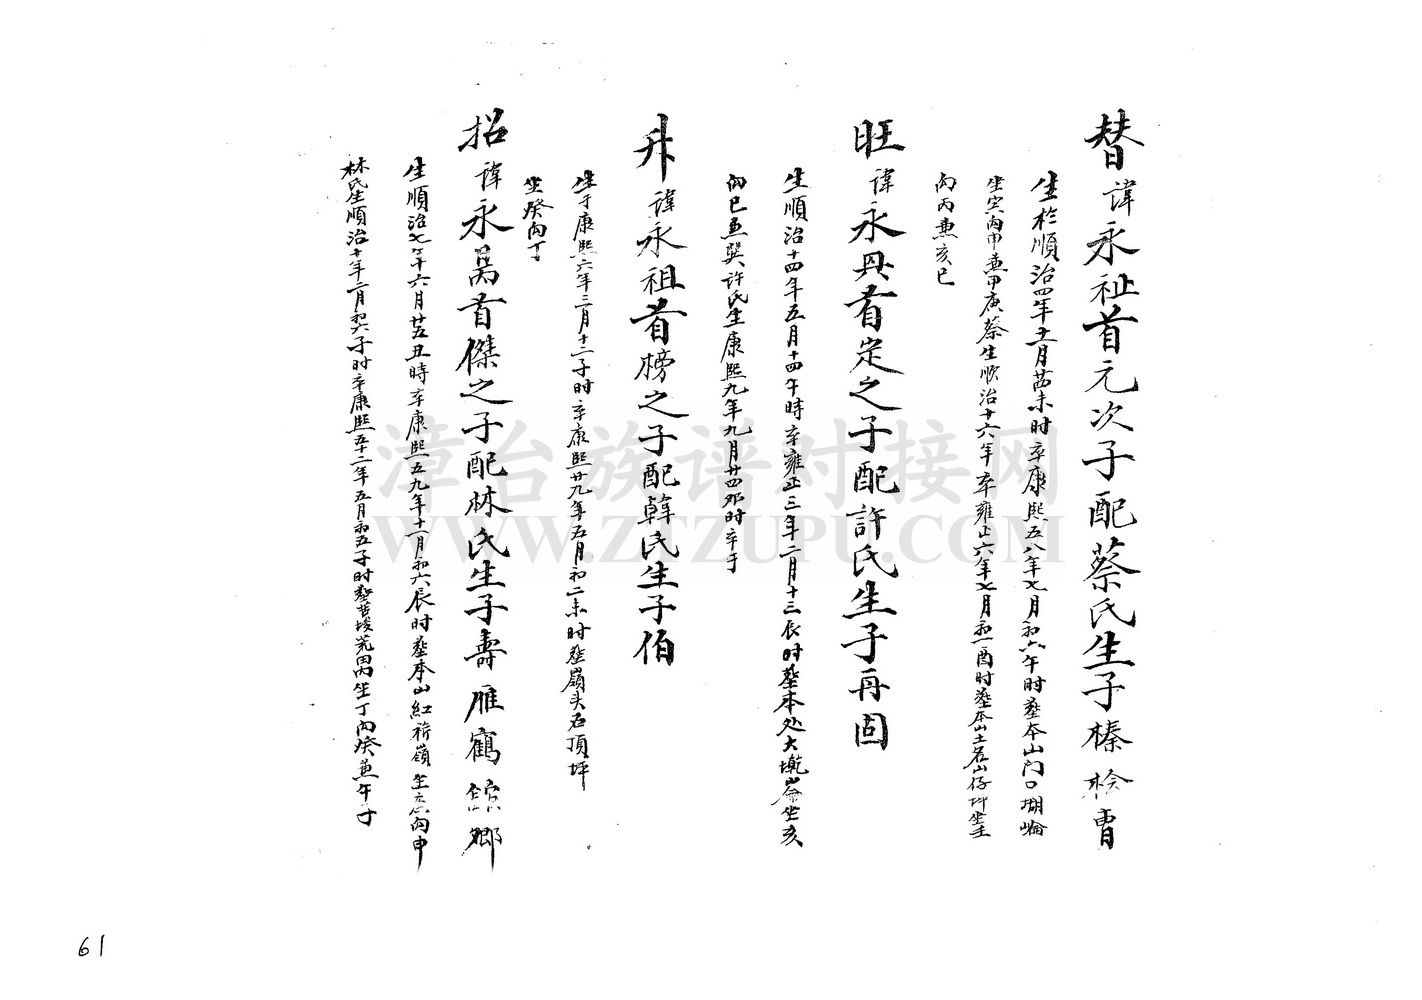 替諱永祉首元次子配蔡氏生子榛 桧 曹
生於順治四年十二月 未时卒康熙五八年七月初六午时塟本山门口瑚崘
坐寅向申兼甲庚蔡生顺治十六年卒雍正六年七月初一酉时塟本山土名山仔坪坐壬
向丙兼亥巳
旺諱永興首定之子配許氏生子再固
生順治十四年五月十四午時卒雍正三年二月十三辰时塟本处大墘崙坐亥
向巳兼巽许氏生康熙九年九月廿四卯时卒于
升諱永祖首榜之子配韓氏生子伯
生于康熙六年三月十二子时卒康熙廿九年五月初二未时塟嶺头石頂坪
坐癸向丁
招諱永萬首傑之子配林氏生子壽 雁 鶴 館 鄉
生順治七年六月廿五丑時卒康熙五九年十一月初六辰时塟本山紅 嶺坐 向申
林氏生順治十年二月初六子时卒康熙五十二年五月初五子时塟 埈荒田 坐丁向癸兼午子
漳台族谱对接网
WWW.ZTZUPU.COM
61